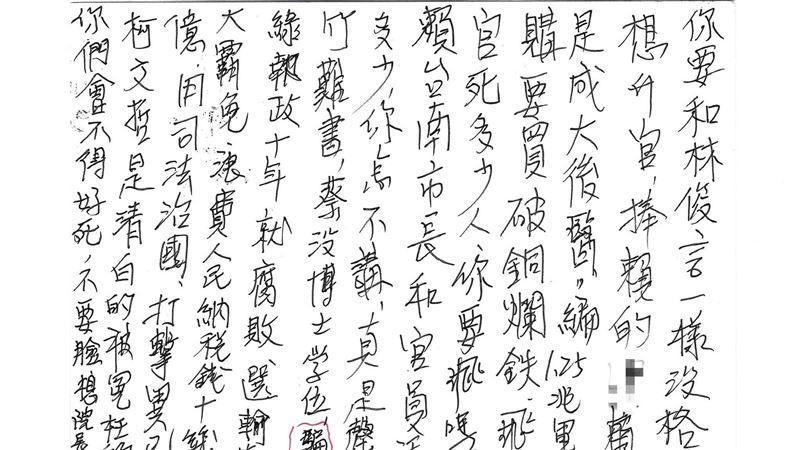 你要和林俊言一樣沒格
想升官，捧賴的
是成大後醫，編1.25兆軍
購要買破銅爛鉄，飛
官死多少人，你要飛嗎
賴台南市長和官員
多少，你怎不講，真是罄
竹難書，蔡沒博士学位，騙
綠執政十年就腐敗，選輸
大罷免浪費人民納税錢十幾
億用司法治國，打擊異己
柯文哲是清白的被冤枉
你們會不得好死，不要臉想院長